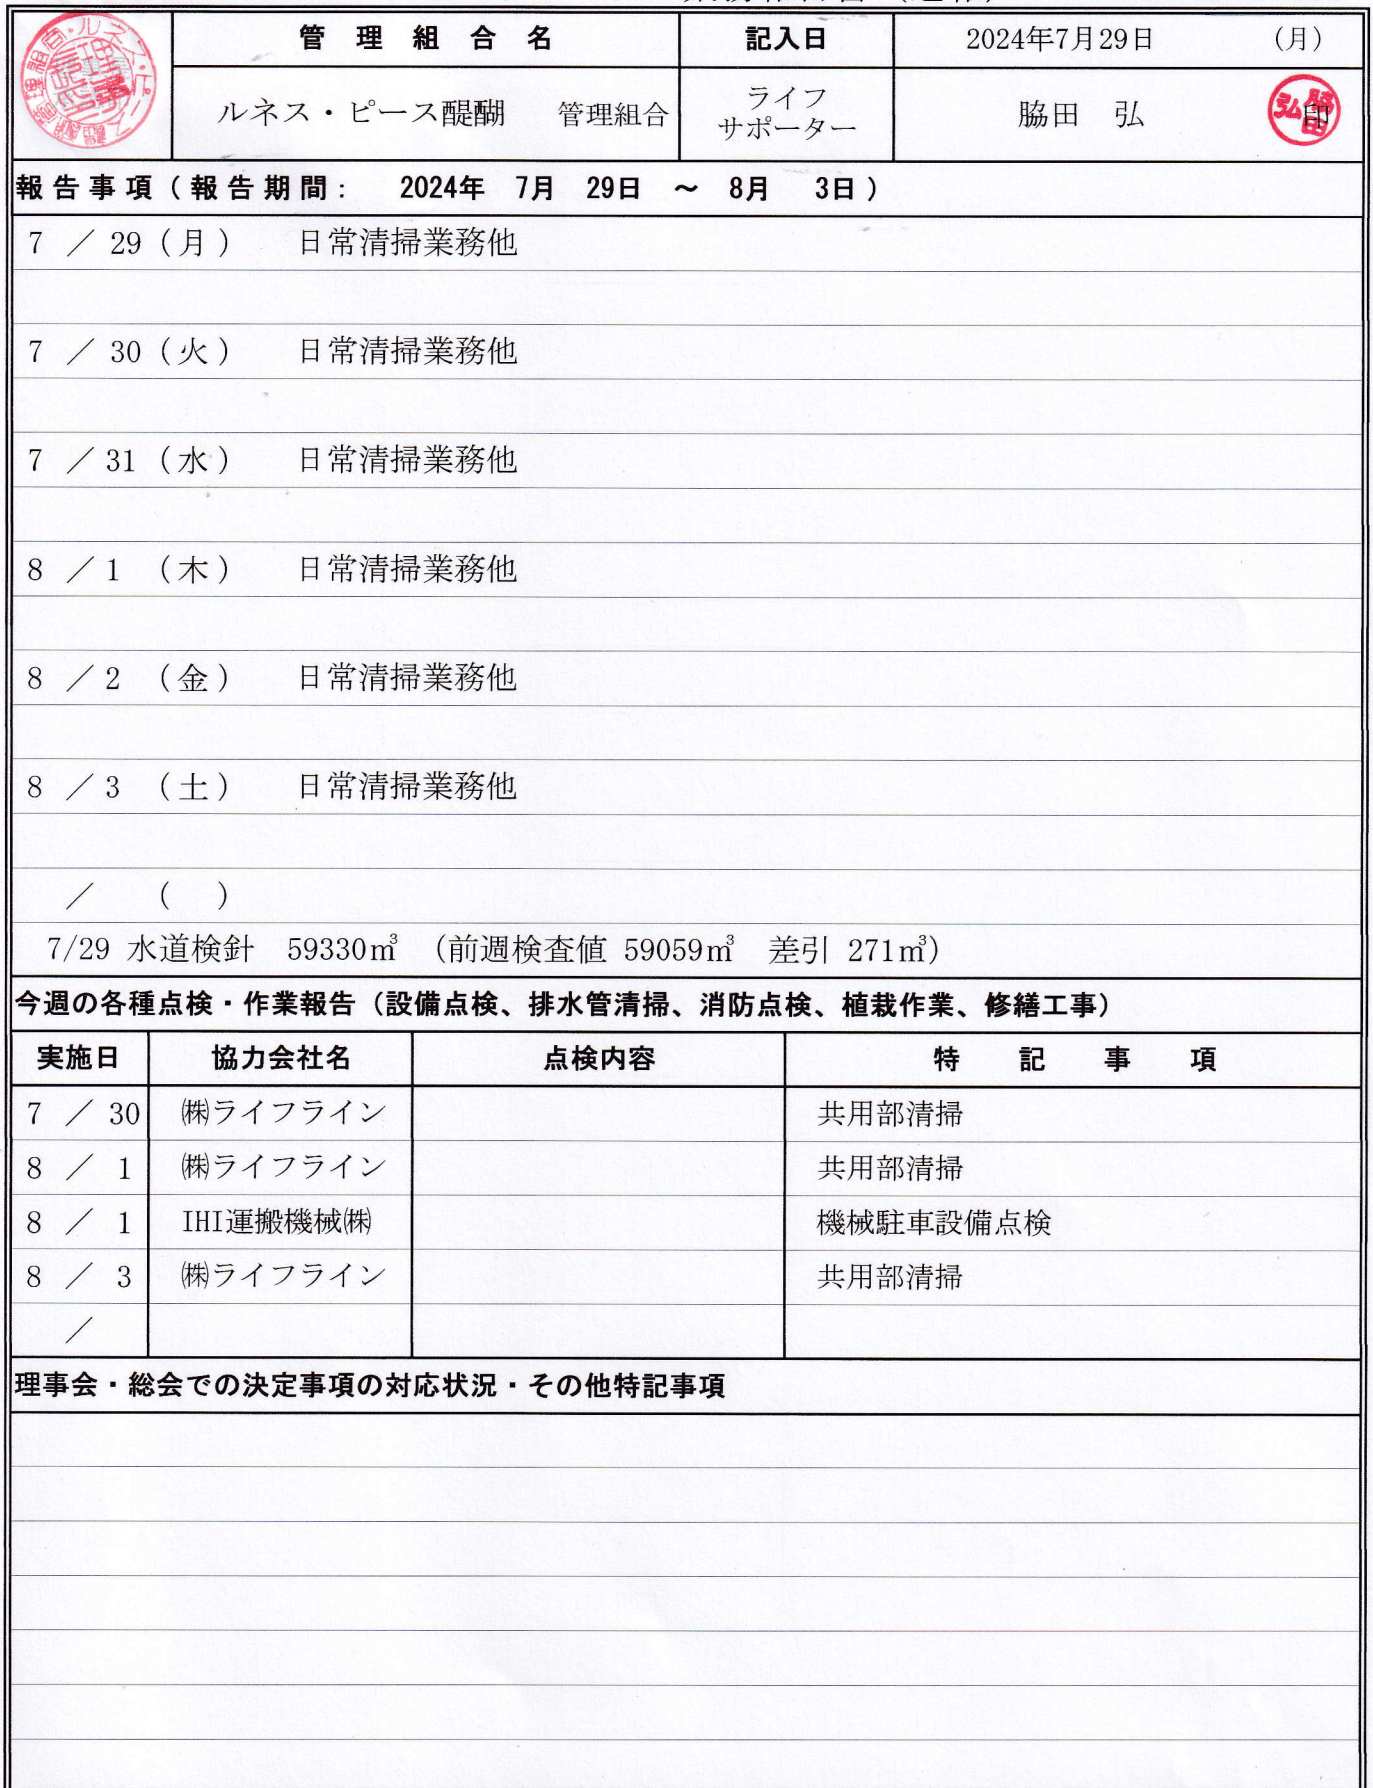 管理組合名 記入日 2024年7月29日 (月)
ルネス・ピース醍醐 管理組合 ライフ
サポーター 脇田 弘 印
報告事項(報告期間: 2024年 7月 29日 ～ 8月 3日)
7 ／ 29 (月) 日常清掃業務他
7 ／ 30 (火) 日常清掃業務他
7 ／ 31 (水) 日常清掃業務他
8 ／ 1 (木) 日常清掃業務他
8 ／ 2 (金) 日常清掃業務他
8 ／ 3 (土) 日常清掃業務他
／ ( )
7/29 水道検針 59330㎥ (前週検査値 59059㎥ 差引 271㎥)
今週の各種点検・作業報告(設備点検、排水管清掃、消防点検、植栽作業、修繕工事)
実施日 協力会社名 点検内容 特記事項
7 ／ 30 ㈱ライフライン 共用部清掃
8 ／ 1 ㈱ライフライン 共用部清掃
8 ／ 1 IHI運搬機械㈱ 機械駐車設備点検
8 ／ 3 ㈱ライフライン 共用部清掃
／
理事会・総会での決定事項の対応状況・その他特記事項